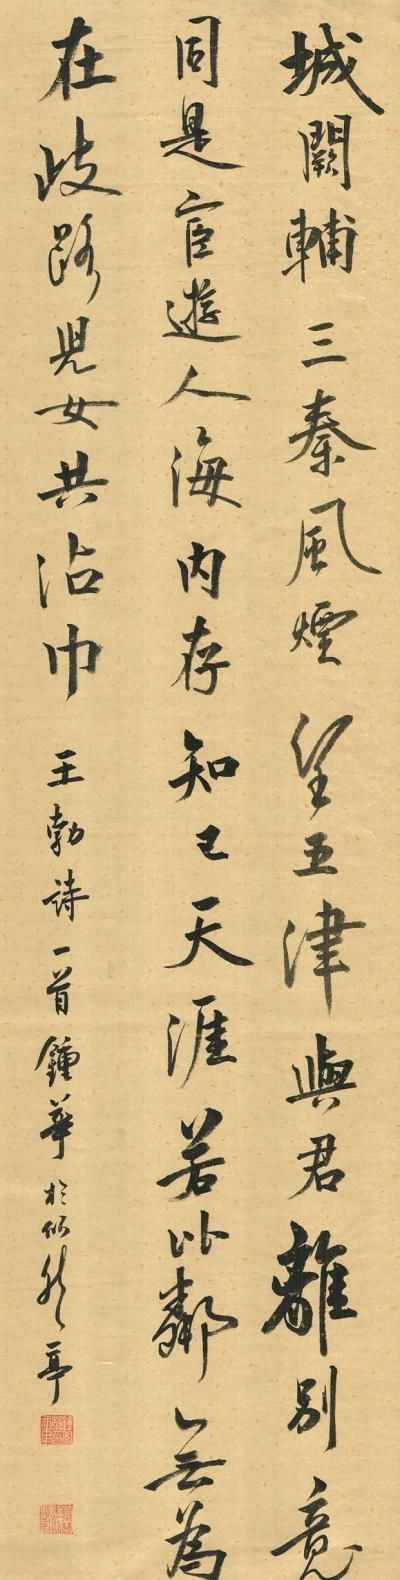 城闕輔三秦風煙望五津與君離別意
同是宦遊人海内存知己天涯若比鄰無為
在歧路兒女共沾巾
王勃詩一首鍾華於
亭